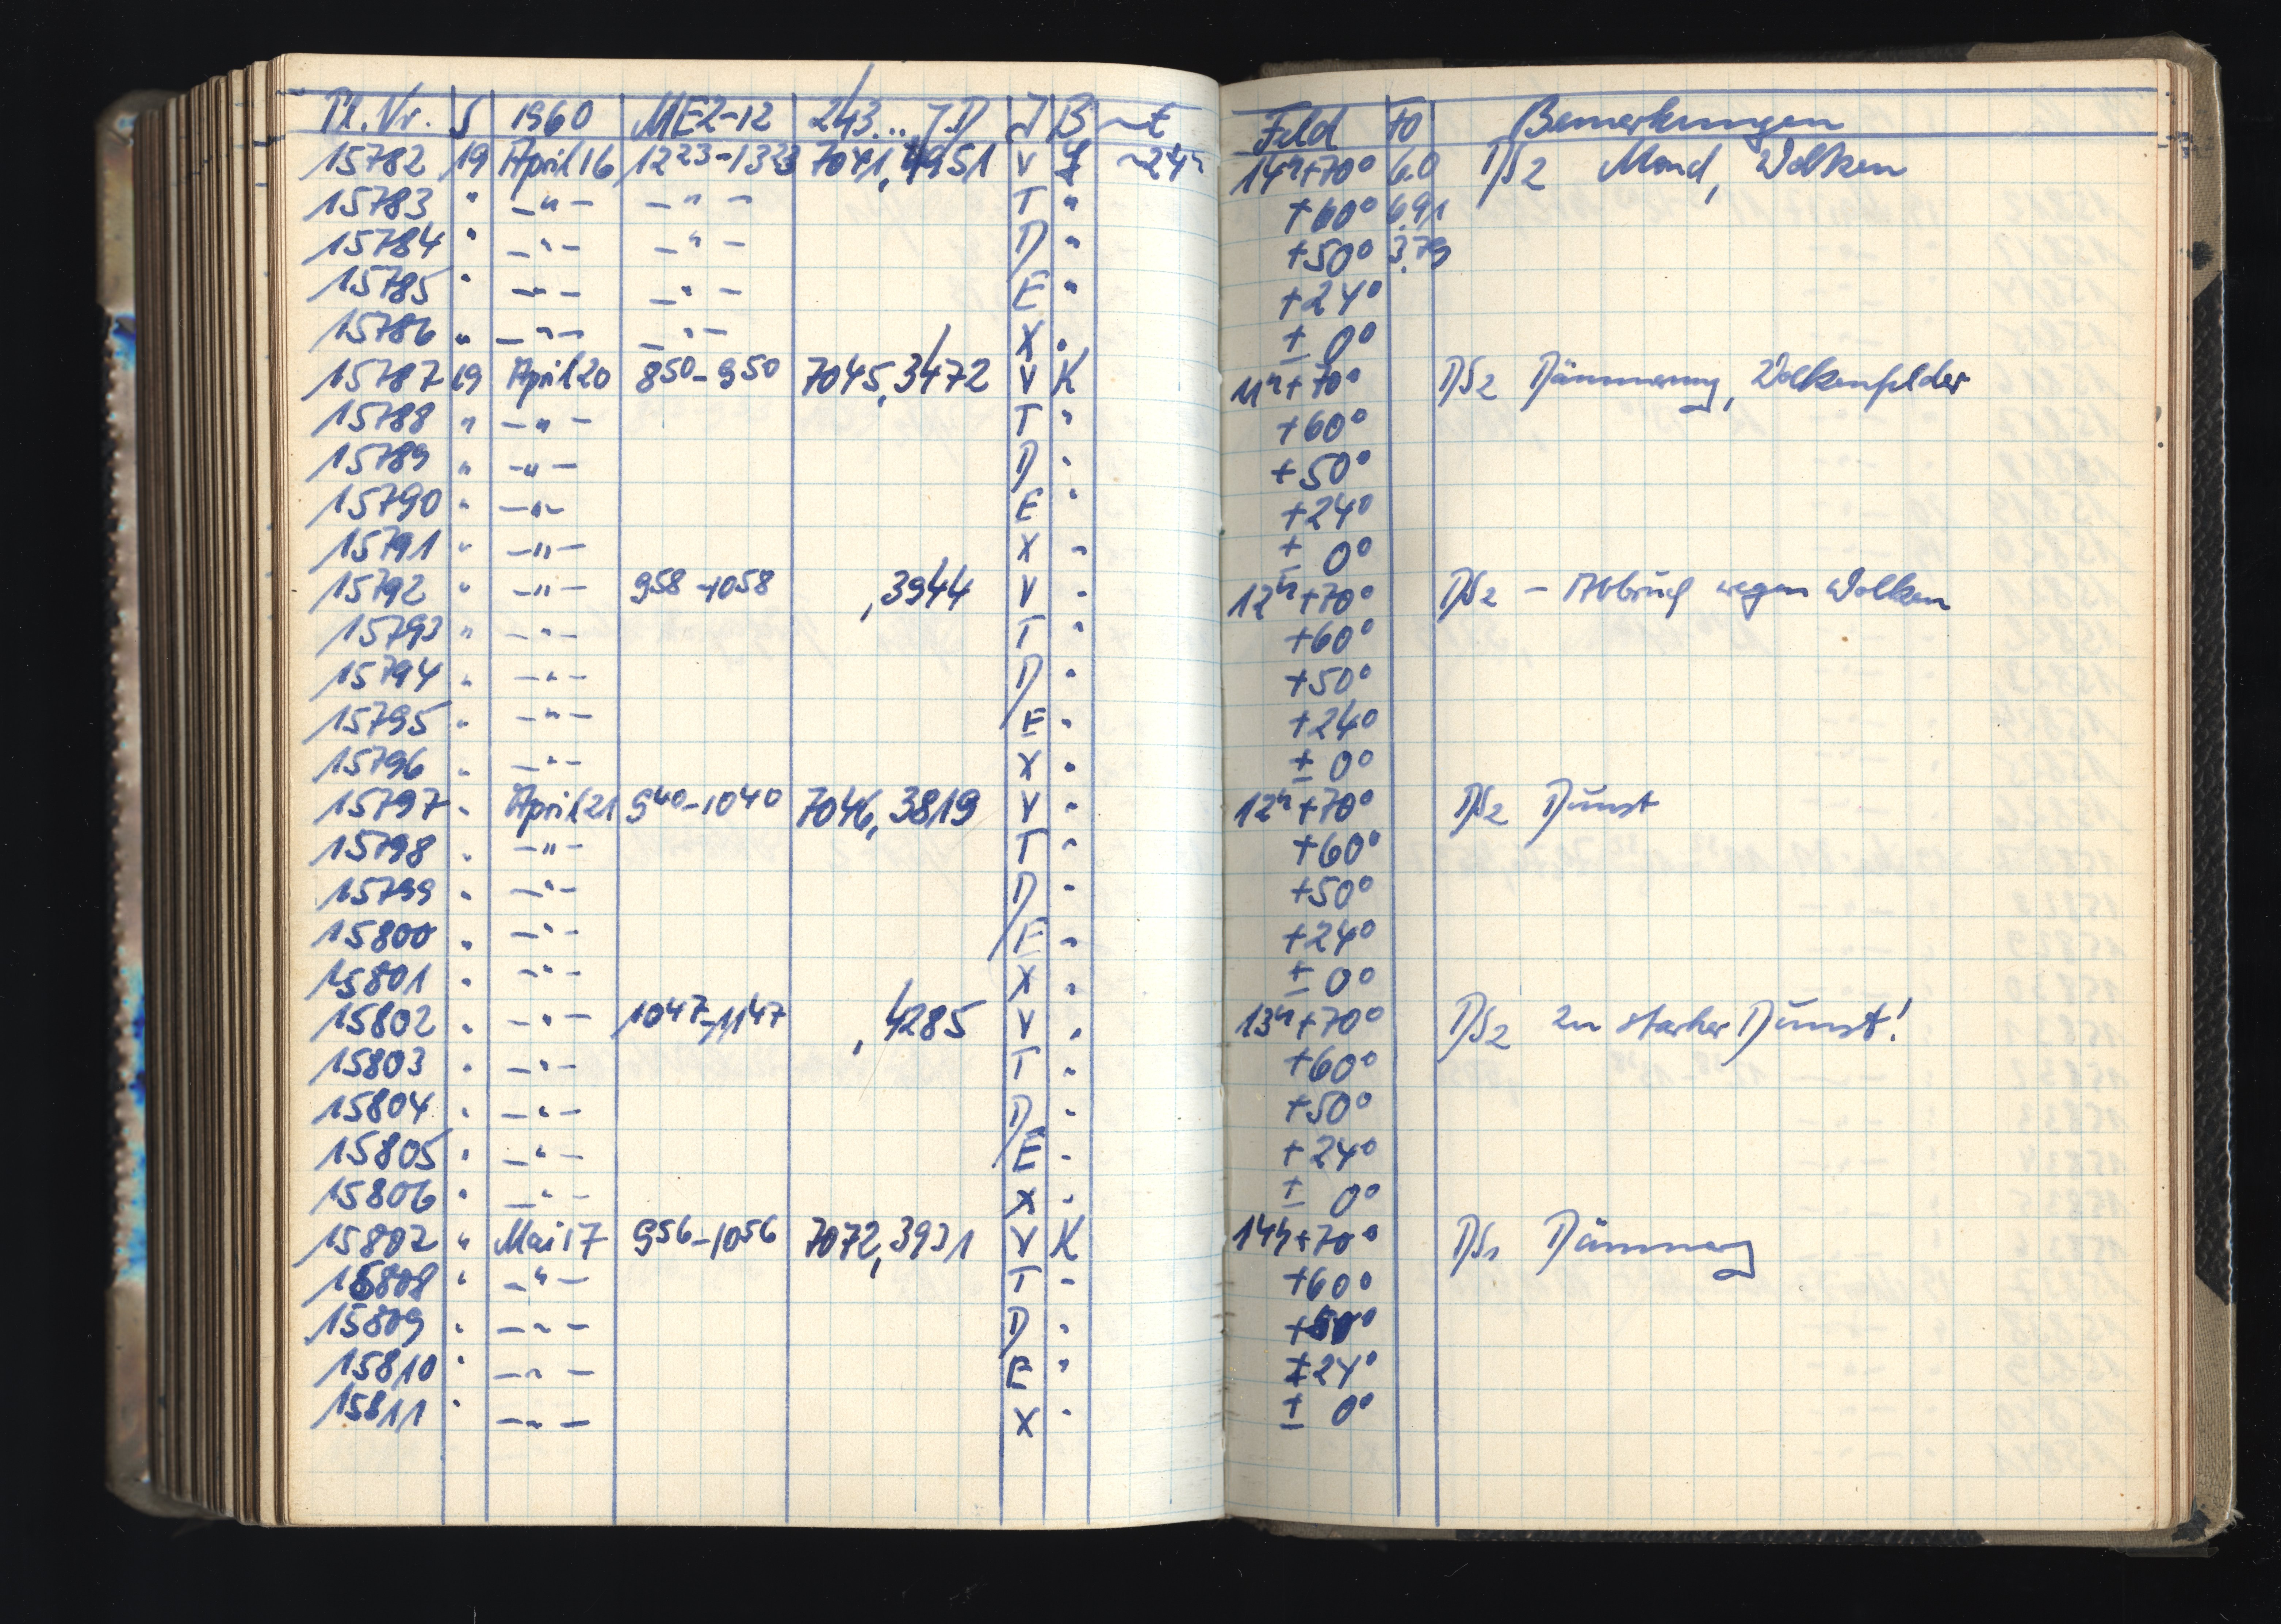 Pl. Nr. S 1960 MEZ-12 243... JD J B ~t Feld fo Bemerkungen
15782 19 April 16 12 23 - 13 23 7041,4951 V ~24h 14h+70° 6.0 DS2 Mond, Wolken
15783 " -"- -"- T " +60° 6.91
15784 " -"- -"- D " +50° 3.79
15785 " -"- -"- E " +24°
15786 " -"- -"- X " ± 0°
15787 19 April 20 8 50 - 9 50 7045,3472 V K 11h+70° DS2 Dämmerung, Wolkenfelder
15788 " -"- T " +60°
15789 " -"- D " +50°
15790 " -"- E " +24°
15791 " -"- X " ± 0°
15792 " -"- 9 58 - 10 58 ,3944 V " 12h+70° DS2 - Abbruch wegen Wolken
15793 " -"- T " +60°
15794 " -"- D " +50°
15795 " -"- E " +24°
15796 " -"- X " ± 0°
15797 " April 21 9 40 - 10 40 7046,3819 V " 12h+70° DS2 Dunst
15798 " -"- T " +60°
15799 " -"- D " +50°
15800 " -"- E " +24°
15801 " -"- X " ± 0°
15802 " -"- 10 47 - 11 47 ,4285 V " 13h+70° DS2 zu starker Dunst!
15803 " -"- T " +60°
15804 " -"- D " +50°
15805 " -"- E " +24°
15806 " -"- X " ± 0°
15807 " Mai 17 9 56 - 10 56 7072,3931 V K 14h+70° DS1 Dämmerung
15808 " -"- T " +60°
15809 " -"- D " +50°
15810 " -"- E " +24°
15811 " -"- X " ± 0°